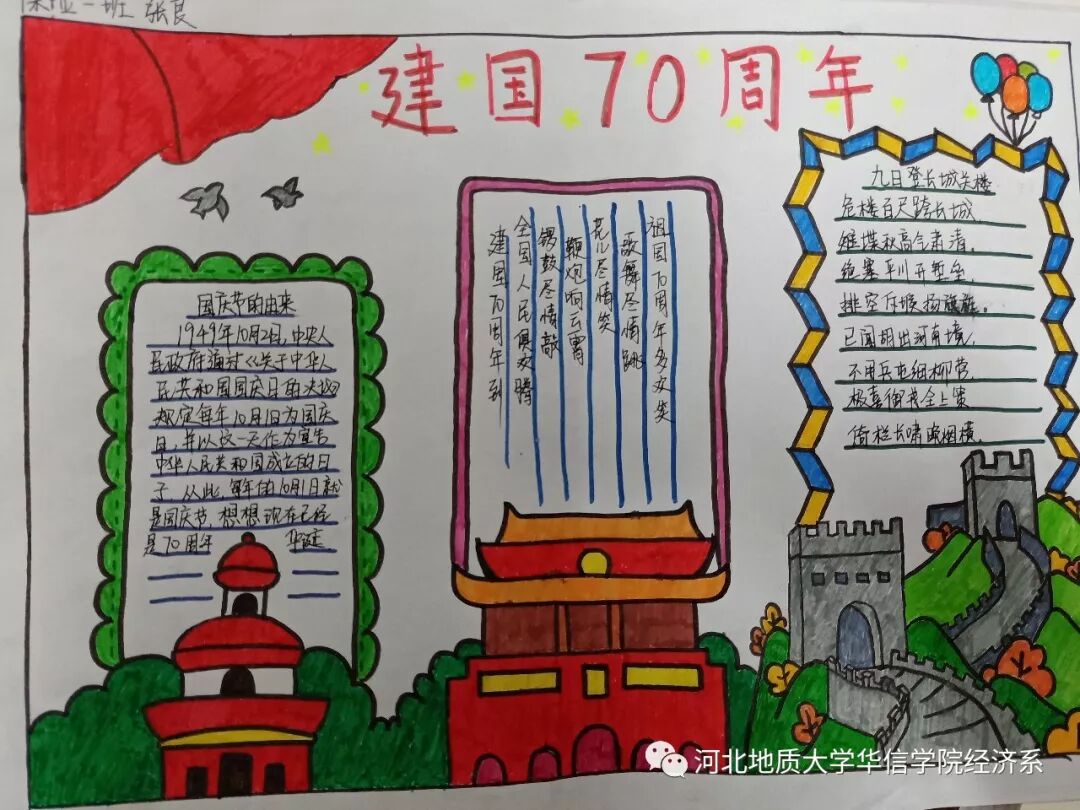 保险一班 张良
建国70周年
国庆节的由来
1949年10月2日,中央人
民政府通过《关于中华人
民共和国国庆日的决议》
规定每年10月1日为国庆
日,并以这一天作为宣告
中华人民共和国成立的日
子.从此,每年的10月1日就
是国庆节,想想现在已经
是70周年 华诞
建国70周年到
全国人民俱欢腾
锣鼓尽情敲
鞭炮响云霄
花儿尽情笑
歌舞尽情跳
祖国70周年多欢笑
九日登长城关楼
危楼百尺跨长城,
雉堞秋高气肃清,
绝塞平川开堑垒,
排空斥堠扬旗旌。
已闻胡出河南境,
不用兵屯细柳营,
极喜御戎全上策
倚栏长啸晚烟横.
河北地质大学华信学院经济系